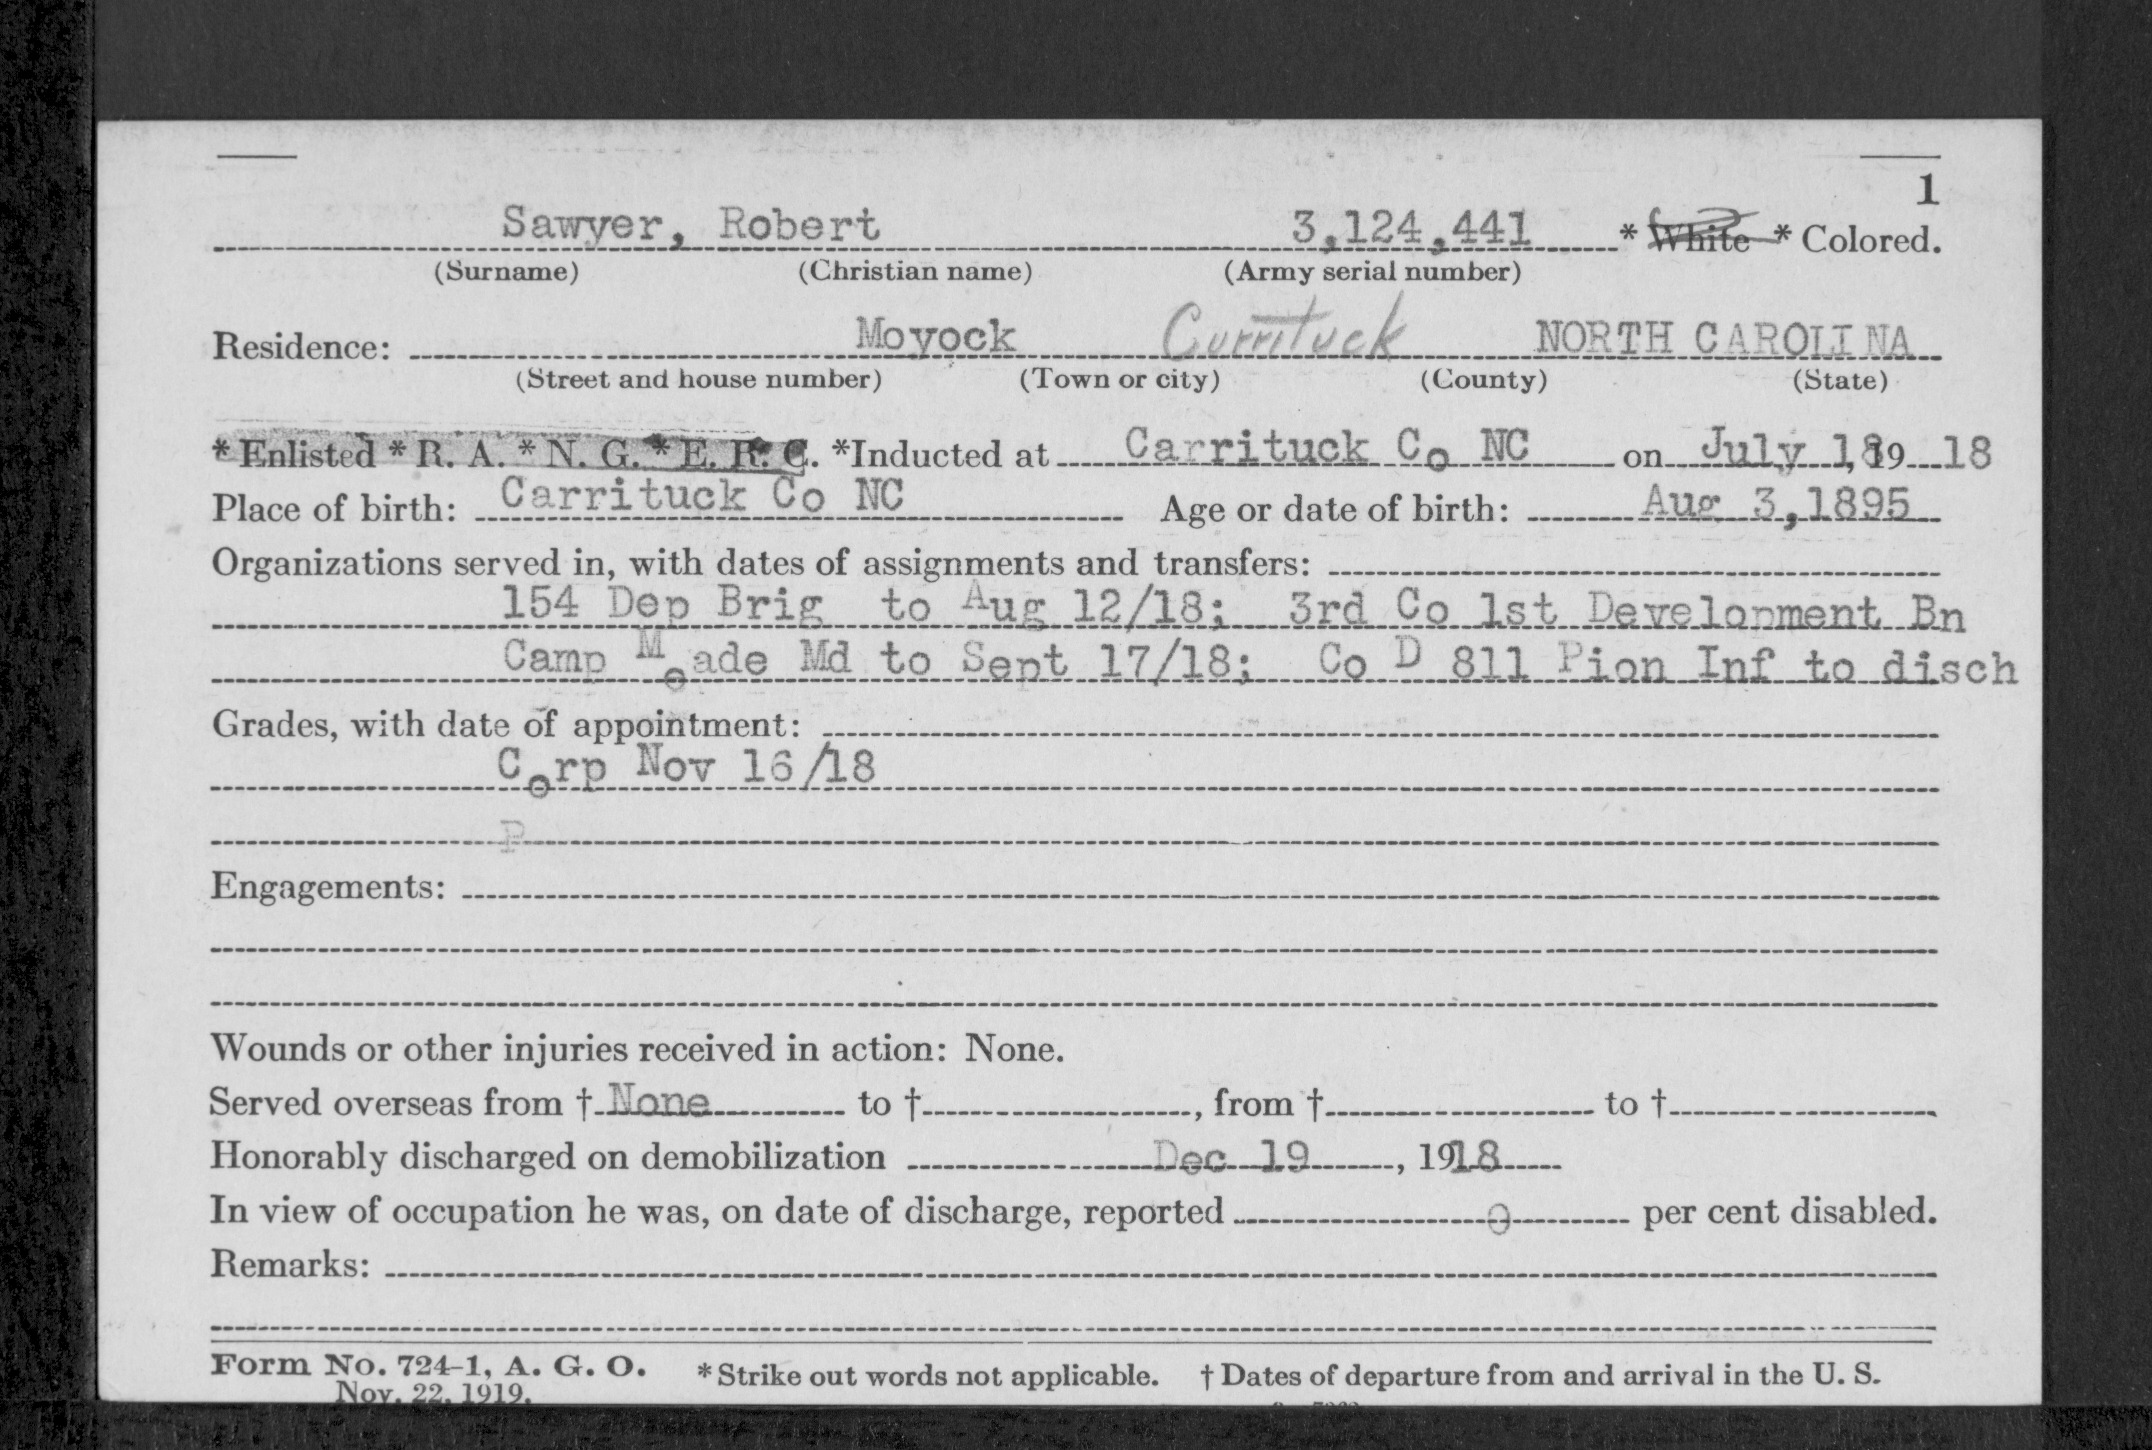 1
Sawyer, Robert 3,124,441 * White * Colored.
(Surname) (Christian name) (Army serial number)
Residence: Moyock Currituck NORTH CAROLINA
(Street and house number) (Town or city) (County) (State)
* Enlisted * R. A. * N. G. * E. R. C. *Inducted at Carrituck Co NC on July 18, 19 18
Place of birth: Carrituck Co NC Age or date of birth: Aug 3, 1895
Organizations served in, with dates of assignments and transfers:
154 Dep Brig to Aug 12/18; 3rd Co 1st Development Bn
Camp Meade Md to Sept 17/18; Co D 811 Pion Inf to disch
Grades, with date of appointment:
Corp Nov 16/18
P
Engagements:
Wounds or other injuries received in action: None.
Served overseas from † None to † , from † to †
Honorably discharged on demobilization Dec 19 , 1918
In view of occupation he was, on date of discharge, reported 0 per cent disabled.
Remarks:
Form No. 724-1, A. G. O. * Strike out words not applicable. † Dates of departure from and arrival in the U. S.
Nov. 22, 1919.